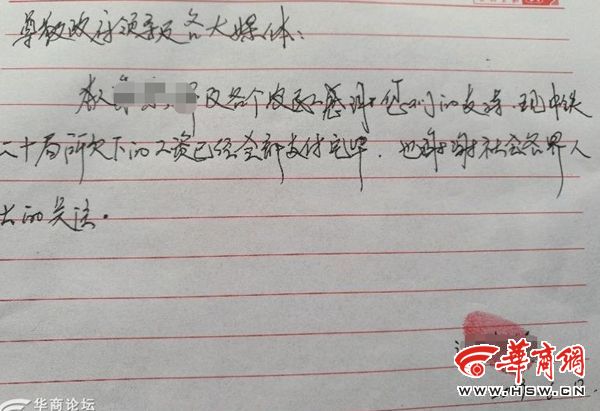 尊敬政府领导及各大媒体：
我 及各个农民工感谢您们的支持。现中铁
二十局所欠下的工资已经全部支付完毕。也谢谢社会各界人
士的关注。
华商网
WWW.HSW.CN
华商论坛